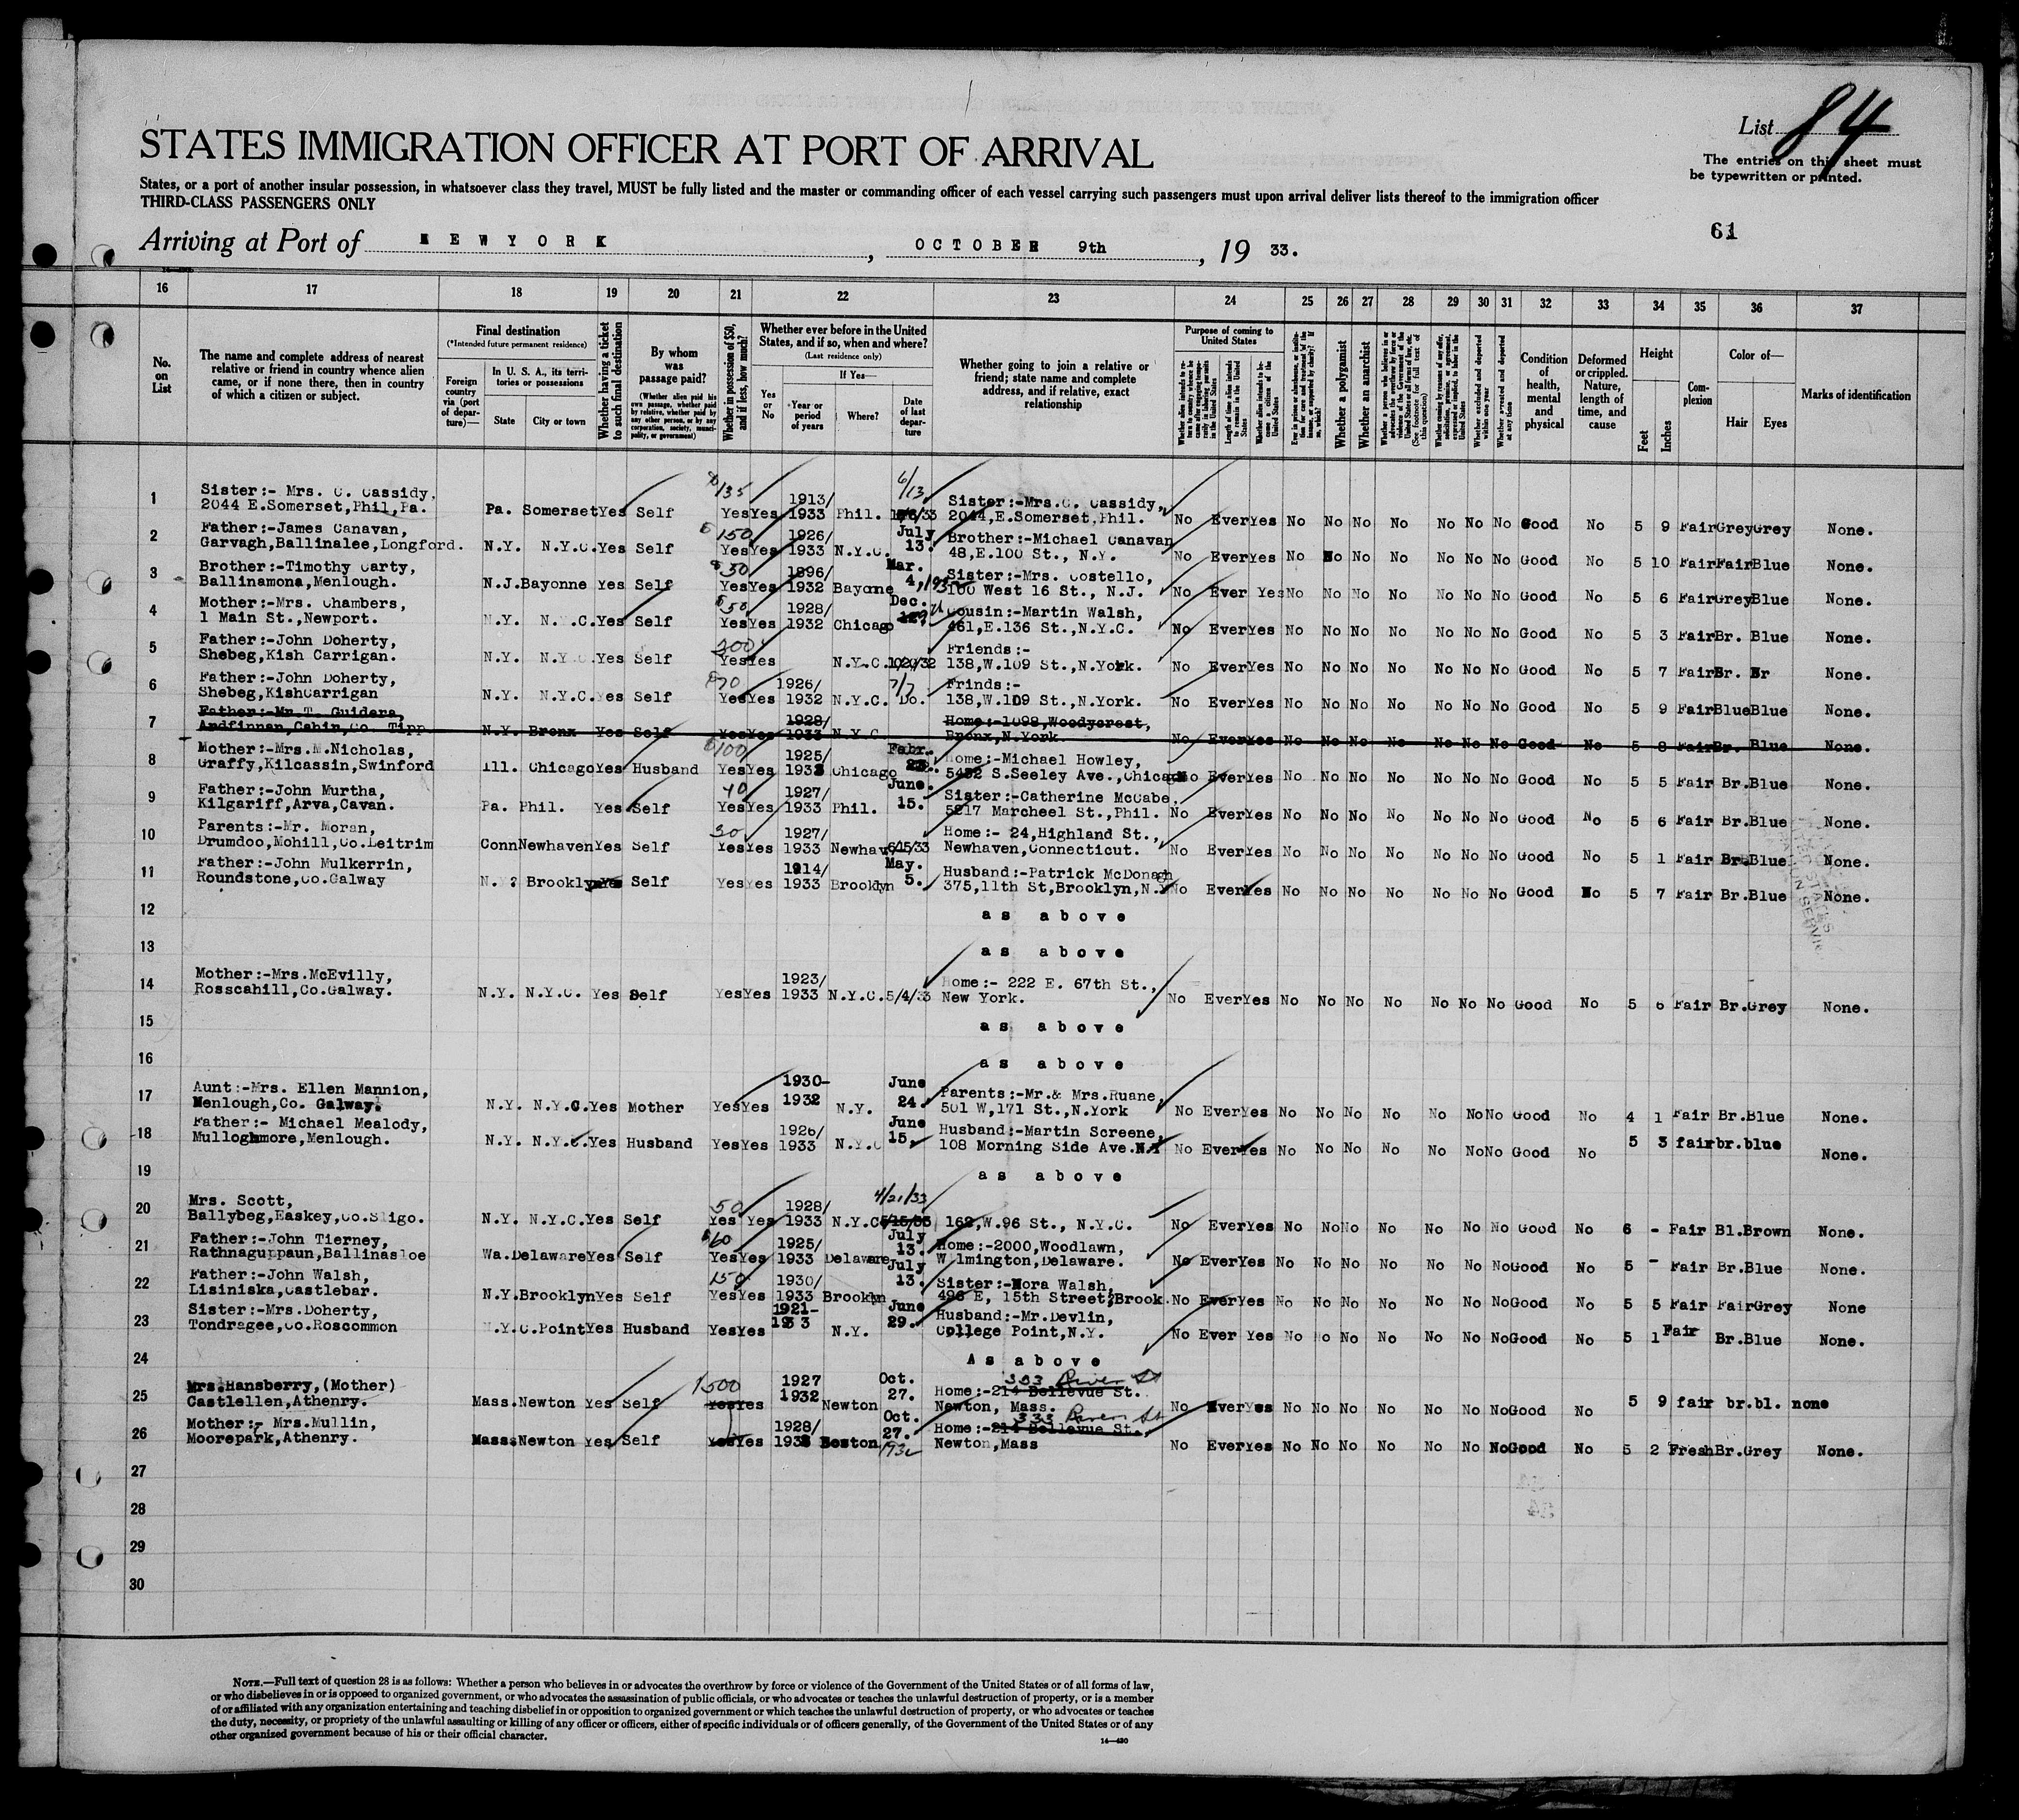 List 84
STATES IMMIGRATION OFFICER AT PORT OF ARRIVAL
The entries on this sheet must
be typewritten or printed.
States, or a port of another insular possession, in whatsoever class they travel, MUST be fully listed and the master or commanding officer of each vessel carrying such passengers must upon arrival deliver lists thereof to the immigration officer
THIRD-CLASS PASSENGERS ONLY
61
Arriving at Port of NEW YORK, OCTOBER 9th, 19 33.
16 17 18 19 20 21 22 23 24 25 26 27 28 29 30 31 32 33 34 35 36 37
No. on List
The name and complete address of nearest relative or friend in country whence alien came, or if none there, then in country of which a citizen or subject.
Final destination
(*Intended future permanent residence)
Foreign country via (port of departure)—
In U. S. A., its territories or possessions
State City or town
Whether having a ticket to such final destination
By whom was passage paid?
(Whether alien paid his own passage, whether paid by relative, whether paid by any other person, or by any corporation, society, municipality, or government)
Whether in possession of $50, and if less, how much?
Whether ever before in the United States, and if so, when and where?
(Last residence only)
Yes or No
If Yes—
Year or period of years
Where?
Date of last departure
Whether going to join a relative or friend; state name and complete address, and if relative, exact relationship
Purpose of coming to United States
Length of time alien intends to remain in the United States
Whether alien intends to become a citizen of the United States
Whether a polygamist
Whether an anarchist
Whether arrested and deported at any time
Condition of health, mental and physical
Deformed or crippled. Nature, length of time, and cause
Height
Feet Inches
Complexion
Color of—
Hair Eyes
Marks of identification
1 Sister:- Mrs. C. Cassidy, $135 1913/ 6/13 Sister:-Mrs.C. Cassidy,
2044 E.Somerset,Phil,Pa. Pa. Somerset Yes Self Yes Yes 1933 Phil. 2044,E.Somerset,Phil. No Ever Yes No No No No No No No Good No 5 9 Fair Grey Grey None.
2 Father:-James Canavan, $150 1926/ July Brother:-Michael Canavan
Garvagh,Ballinalee,Longford. N.Y. N.Y.C. Yes Self Yes Yes 1933 N.Y.C. 13. 48,E.100 St., N.Y. No Ever Yes No No No No No No No Good No 5 10 Fair Fair Blue None.
3 Brother:-Timothy Carty, $30 1896/ Mar. Sister:-Mrs. Costello,
Ballinamona,Menlough. N.J. Bayonne Yes Self Yes Yes 1932 Bayonne 4, 100 West 16 St., N.J. No Ever Yes No No No No No No No Good No 5 6 Fair Grey Blue None.
4 Mother:-Mrs. Chambers, $50 1928/ Dec. Cousin:-Martin Walsh,
1 Main St.,Newport. N.Y. N.Y.C. Yes Self Yes Yes 1932 Chicago 461,E.136 St.,N.Y.C. No Ever Yes No No No No No No No Good No 5 3 Fair Br. Blue None.
5 Father:-John Doherty, 200 Friends:-
Shebeg,Kish Carrigan. N.Y. N.Y.C. Yes Self Yes Yes N.Y.C. 10/20/32 138,W.109 St.,N.York. No Ever Yes No No No No No No No Good No 5 7 Fair Br. Br None.
6 Father:-John Doherty, $70 1926/ 7/7 Frinds:-
Shebeg,KishCarrigan N.Y. N.Y.C. Yes Self Yes Yes 1932 N.Y.C. Do. 138,W.109 St.,N.York. No Ever Yes No No No No No No No Good No 5 9 Fair Blue Blue None.
7 Father:-Mr.T. Guidera, 1928/ Home:-1098,Woodycrest,
Ardfinnan,Cahir,Co. Tipp N.Y. Bronx Yes Self Yes Yes 1933 N.Y.C. Bronx,N.York. No Ever Yes No No No No No No No Good No 5 8 Fair Br. Blue None.
8 Mother:-Mrs.M.Nicholas, $100 1925/ Febr. Home:-Michael Howley,
Graffy,Kilcassin,Swinford Ill. Chicago Yes Husband Yes Yes 1933 Chicago 23. 5452 S.Seeley Ave.,Chicago No Ever Yes No No No No No No No Good No 5 5 Fair Br. Blue None.
9 Father:-John Murtha, 40 1927/ June. Sister:-Catherine McCabe,
Kilgariff,Arva,Cavan. Pa. Phil. Yes Self Yes Yes 1933 Phil. 15. 5217 Marcheel St.,Phil. No Ever Yes No No No No No No No Good No 5 6 Fair Br. Blue None.
10 Parents:-Mr. Moran, 30 1927/ Home:- 24,Highland St.,
Drumdoo,Mohill,Co.Leitrim Conn Newhaven Yes Self Yes Yes 1933 Newhav 6/15/33 Newhaven,Connecticut. No Ever Yes No No No No No No No Good No 5 1 Fair Br. Blue None.
11 Father:-John Mulkerrin, 1914/ May. Husband:-Patrick McDonagh
Roundstone,Co.Galway N.Y. Brooklyn Yes Self Yes Yes 1933 Brooklyn 5. 375,11th St,Brooklyn,N.Y No Ever Yes No No No No No No No Good No 5 7 Fair Br. Blue None.
12 as above
13 as above
14 Mother:-Mrs.McEvilly, 1923/ Home:- 222 E. 67th St.,
Rosscahill,Co.Galway. N.Y. N.Y.C. Yes Self Yes Yes 1933 N.Y.C. 5/4/33 New York. No Ever Yes No No No No No No No Good No 5 6 Fair Br. Grey None.
15 as above
16 as above
17 Aunt:-Mrs. Ellen Mannion, 1930- June Parents:-Mr.& Mrs.Ruane,
Menlough,Co. Galway. N.Y. N.Y.C. Yes Mother Yes Yes 1932 N.Y. 24. 501 W,171 St.,N.York No Ever Yes No No No No No No No Good No 4 1 Fair Br. Blue None.
18 Father:- Michael Mealody, 1926/ June Husband:-Martin Screene,
Mulloghmore,Menlough. N.Y. N.Y.C. Yes Husband Yes Yes 1933 N.Y.C 15. 108 Morning Side Ave.N.Y No Ever Yes No No No No No No No Good No 5 3 fair br. blue None.
19 as above
20 Mrs. Scott, 50 1928/ 4/21/33
Ballybeg,Easkey,Co.Sligo. N.Y. N.Y.C. Yes Self Yes Yes 1933 N.Y.C 5/15/33 162,W.96 St., N.Y.C. No Ever Yes No No No No No No No Good No 6 - Fair Bl. Brown None.
21 Father:-John Tierney, $60 1925/ July Home:-2000,Woodlawn,
Rathnaguppaun,Ballinasloe Wa. Delaware Yes Self Yes Yes 1933 Delaware 13. Wilmington,Delaware. No Ever Yes No No No No No No No Good No 5 - Fair Br. Blue None.
22 Father:-John Walsh, 150 1930/ July 13. Sister:-Nora Walsh,
Lisiniska,Castlebar. N.Y. Brooklyn Yes Self Yes Yes 1933 Brooklyn 496 E, 15th Street,Brook. No Ever Yes No No No No No No No Good No 5 5 Fair Fair Grey None
23 Sister:-Mrs.Doherty, 1921- June Husband:-Mr.Devlin,
Tondragee,Co.Roscommon N.Y. C.Point Yes Husband Yes Yes 1933 N.Y. 29. College Point,N.Y. No Ever Yes No No No No No No No Good No 5 1 Fair Br. Blue None.
24 As above
25 Mrs.Hansberry,(Mother) 1500 1927 Oct. 333 River St
Castlellen,Athenry. Mass. Newton Yes Self Yes Yes 1932 Newton 27. Home:-214 Bellevue St.
Newton, Mass. No Ever Yes No No No No No No No Good No 5 9 fair br. bl. none
26 Mother:- Mrs.Mullin, 1928/ Oct. 333 River St
Moorepark,Athenry. Mass. Newton Yes Self Yes Yes 1932 Boston 27. 1932 Home:-214 Bellevue St.,
Newton,Mass No Ever Yes No No No No No No No Good No 5 2 Fresh Br. Grey None.
27
28
29
30
NOTE.—Full text of question 28 is as follows: Whether a person who believes in or advocates the overthrow by force or violence of the Government of the United States or of all forms of law,
or who disbelieves in or is opposed to organized government, or who advocates the assassination of public officials, or who advocates or teaches the unlawful destruction of property, or is a member
of or affiliated with any organization entertaining and teaching disbelief in or opposition to organized government or which teaches the unlawful destruction of property, or who advocates or teaches
the duty, necessity, or propriety of the unlawful assaulting or killing of any officer or officers, either of specific individuals or of officers generally, of the Government of the United States or of any
other organized government because of his or their official character.
14—430